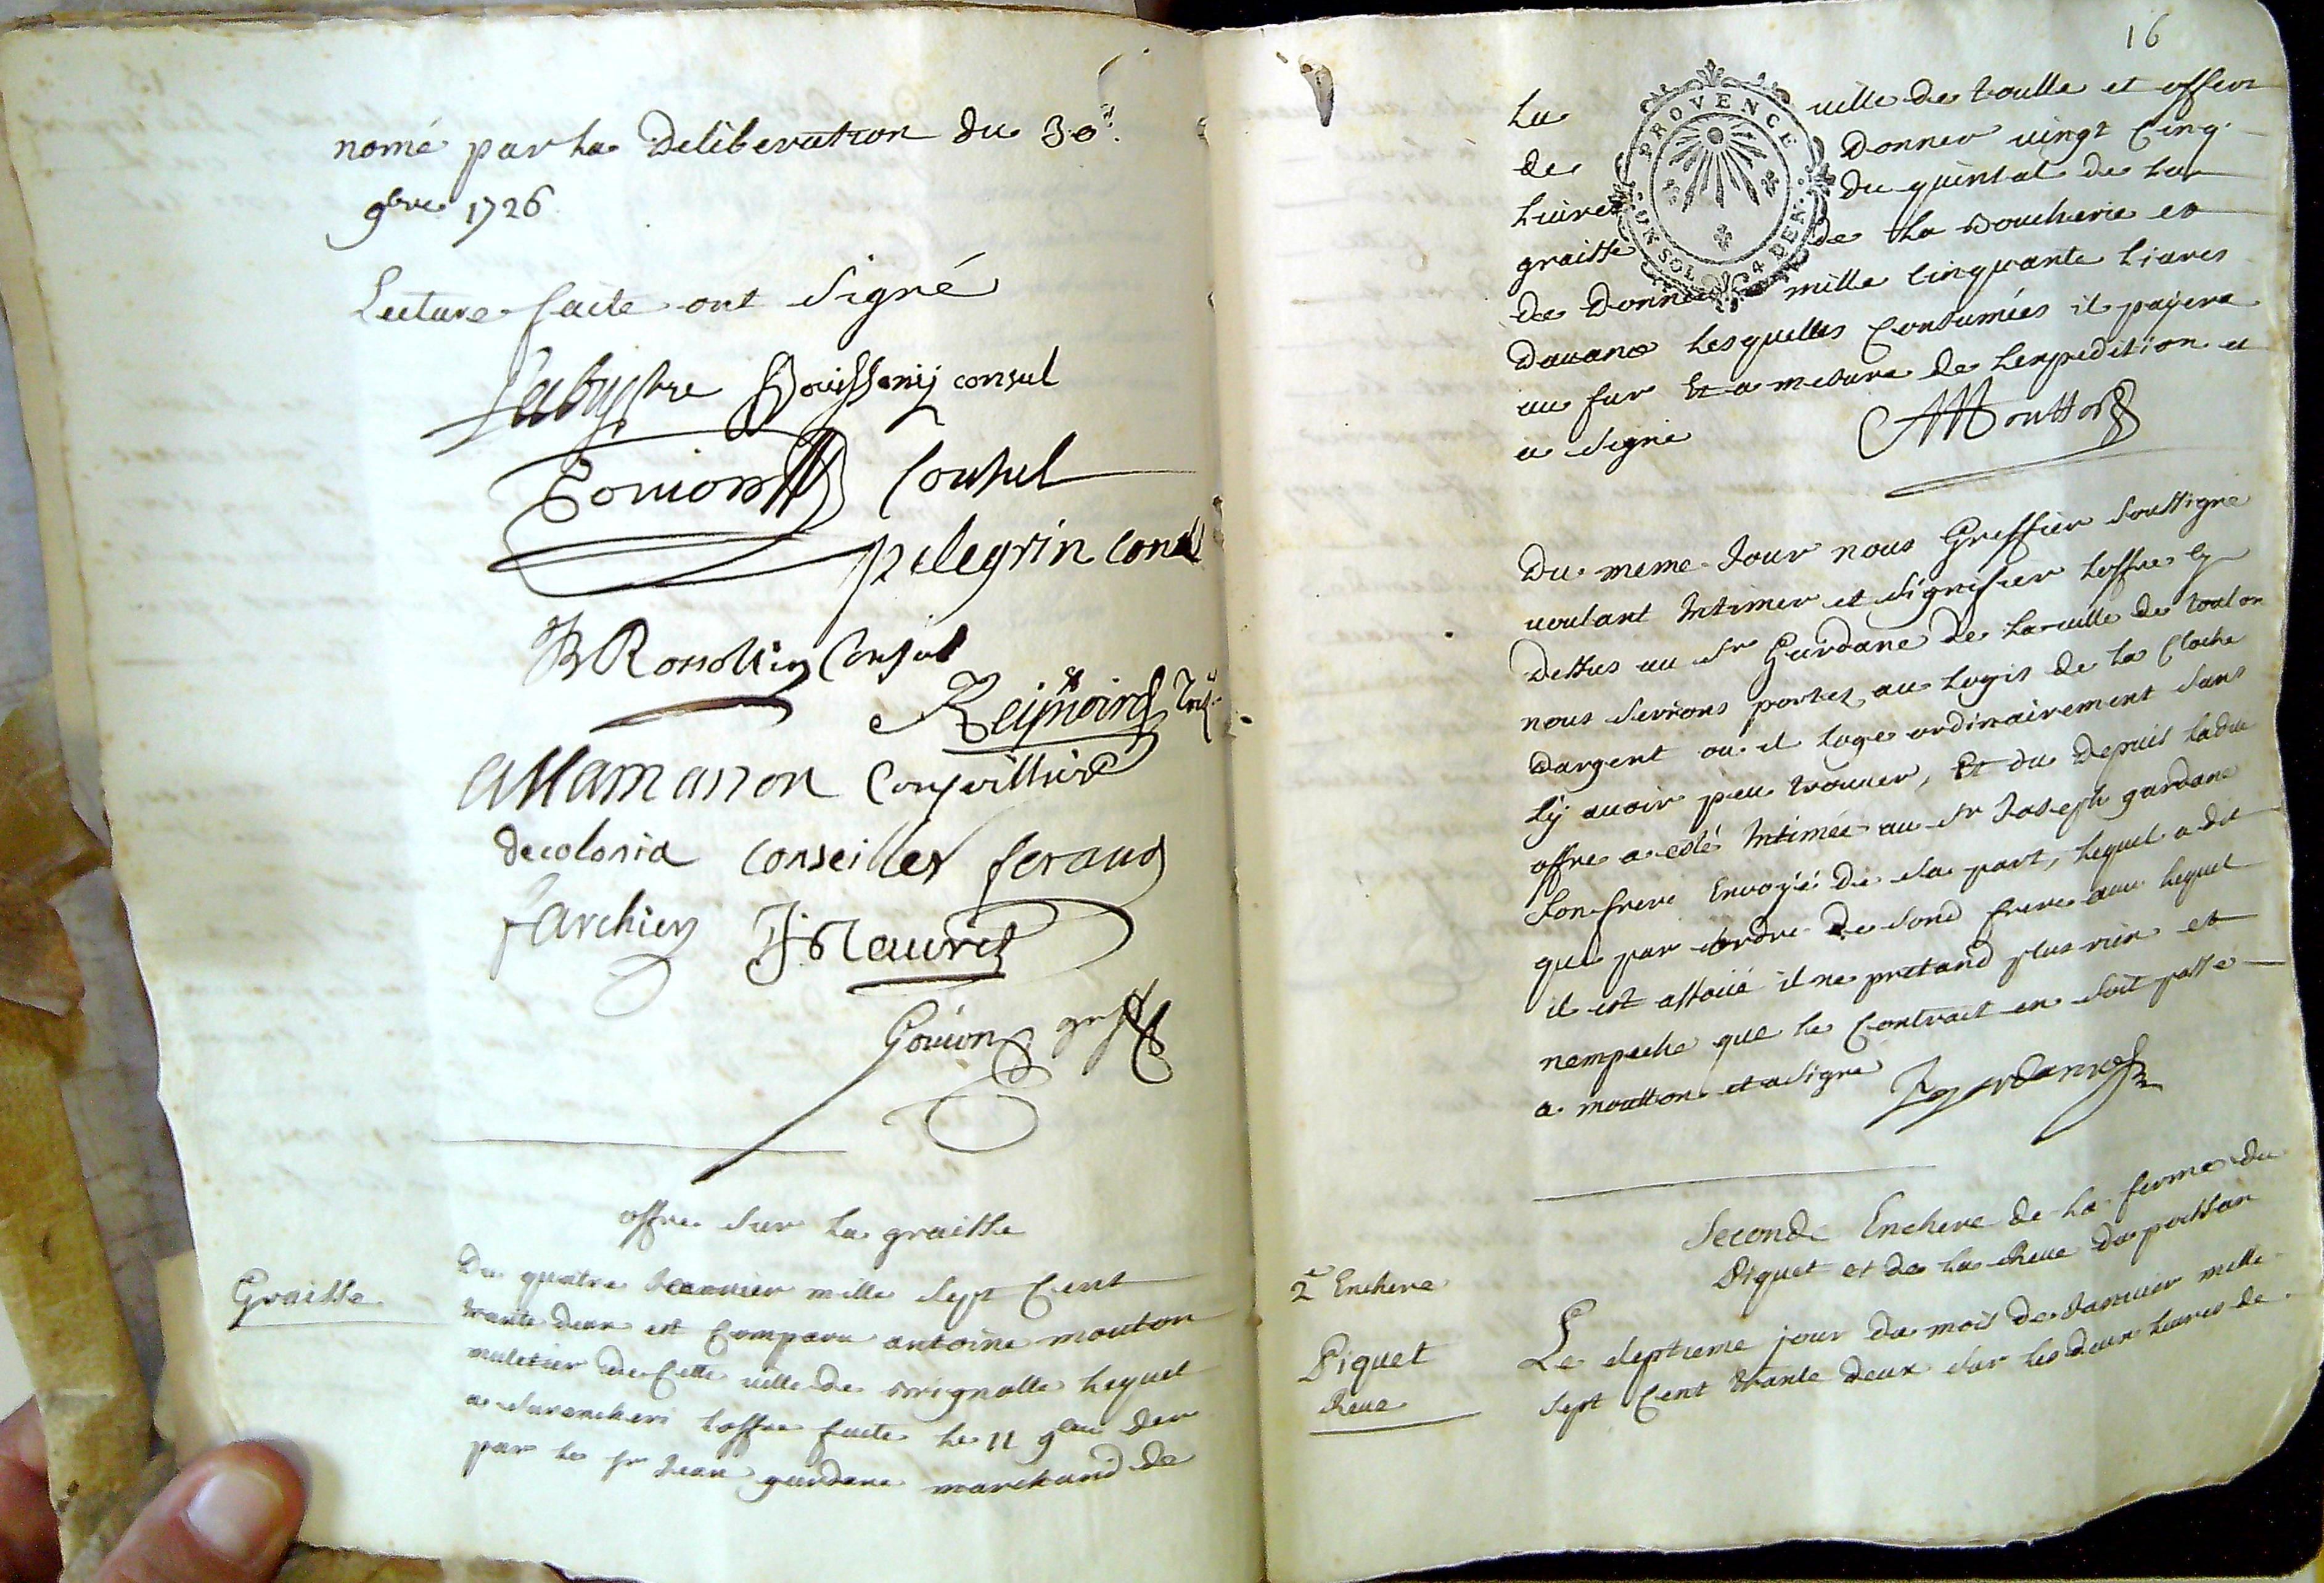 nomé par la Deliberation du 30.e
9bre 1726
Lecture faite ont signé
consul
Goujon Consul
pelegrin consul
Consul
allamanon Conseillier
decolonia conseiller feraud
farchier
Goujon greff
offre sur la graisse
Graisse
Du quatre Janvier mille sept Cent
trante deux est Comparu antoine mouton
muletier de Cette ville de Brignolle lequel
a surencheri loffre faite le 11 9bre der
par le sr Jean gardane marchand de
16
PROVENCE
UN SOL 4 DEN.
La ville de toulle et offert
de Donner vingt Cinq
livres du quintal de la
graisse de la Boucherie et
de Donner mille Cinquante livres
Davance lesquelles Consumées il payera
au fur et a mesure de lexpedition et
a signé
AMoutton
Du meme Jour nous Greffier soussigné
voulant Intimer et signifier loffre cy
dessus au sr Gardane de la ville de toulon
nous serions portés au logis de la Cloche
Dargent ou il loge ordinairement sans
ly avoir peu trouver, Et du depuis ladte
offre a esté Intimée au sr Joseph gardane
son frere Envoyé de sa part, lequel a dit
que par lordre de sond frere avec lequel
il est assoüé il ne pretand plus rien et
nempeche que le Contract en soit passé
a moutton et a signé
Jgardanne
Seconde Enchere de la ferme du
Piquet et de la Reve du poissan
2e Enchere
Piquet
Reve
Le septieme jour du mois de Janvier mille
sept Cent trante deux sur les deux heures de